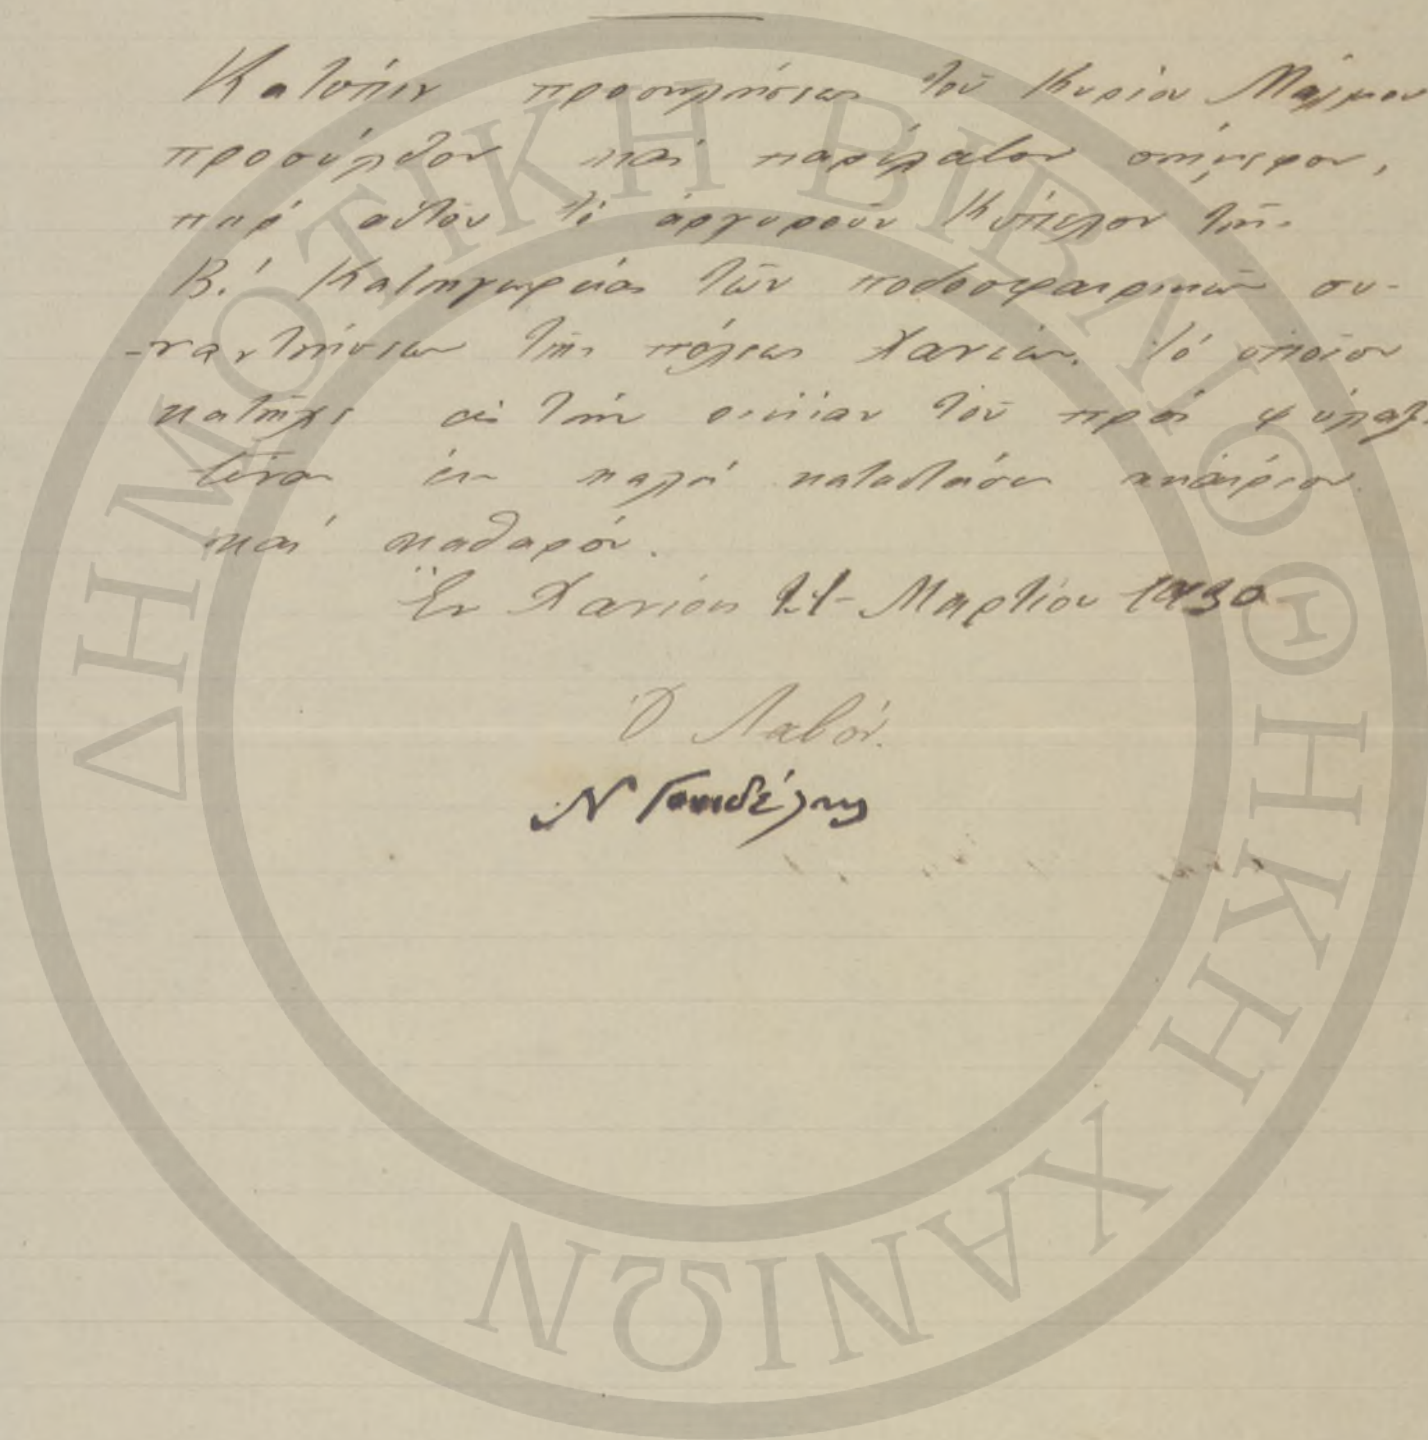 Κατόπιν προσκλήσεως τοῦ Κυρίου Μάλμου
προσύλθον καί παρέλαβον σήμερον,
παρ' αὐτοῦ τό ἀργυροῦν Κύπελον τῆς
Β! Κατηγωρείας τῶν ποδοσφαιρικῶν συ-
-ναντήσεων τῆς πόλεως Χανίων. τό οποῖον
κατῆχε εἰς τήν οικίαν τοῦ πρός φύλαξ.
ἐν καλῆ καταστάσει ακαίρεον
καί καθαρόν.
Ἐν Χανίοις 21- Μαρτίου 1930
Ὁ Λαβόν.
Ν
ΔΗΜΟΤΙΚΗ ΒΙΒΛΙΟΘΗΚΗ ΧΑΝΙΩΝ